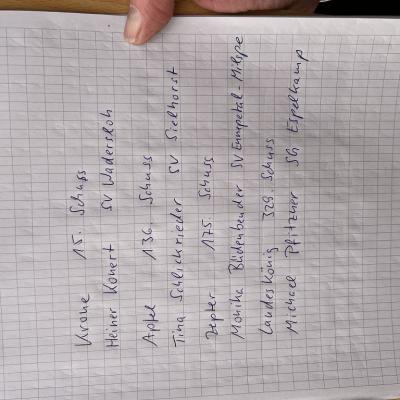 Krone 15. Schuss
Heiner Konert SV Wadersloh
Apfel 136. Schuss
Tina Schlichtrieder SV Sielhorst
Zepter 175. Schuss
Monika Büdenbender SV Ennepetal-Milspe
Landeskönig 329. Schuss
Michael Pfitzner SG Espelkamp